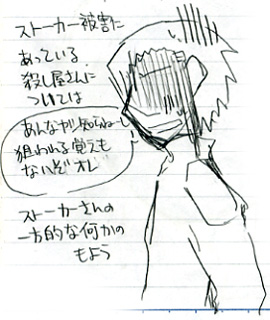 ストーカー被害に
あっている
殺し屋さんに
ついては
あんなヤツ知らねー
狙われる覚えも
ないぞオレ
ストーカーさんの
一方的な何かの
もよう